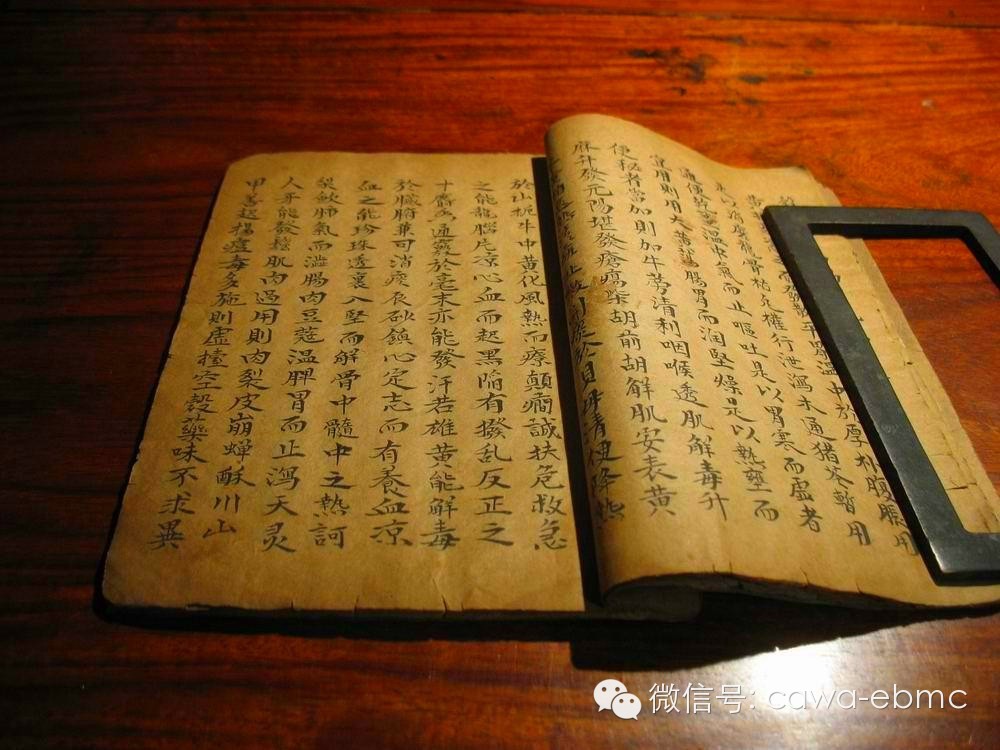 平胃溫中 厚朴腹脹用
龍骨枯凡權行泄瀉木通猪苓暫用
溫中氣而止嘔吐是以胃寒而虛者
宜用則用大黃 腸胃而潤堅燥是以熱壅而
便秘者當加則加牛蒡清利咽喉透肌解毒升
麻升發元陽堪發瘡瘍柴胡前胡解肌安表黃
貝母清便降熱
於山梔牛中黃化風熱而療顛癎誠扶危救急
之能龍腦片凉心血而起黑陷有撥乱反正之
十麝香通竅於毫末亦能發汗若雄黃能解毒
於臟腑兼可消痰辰砂鎮心定志而有養血凉
血之能珍珠透裏入堅而解骨中髓中之熱訶
梨歛肺氣而澁腸肉豆蔻溫脾胃而止瀉天灵
人牙能發鬆肌肉過用則肉裂皮崩蟬酥川山
甲善起 毒多施則虛擡空殼藥味不求異
微信号: cawa-ebmc